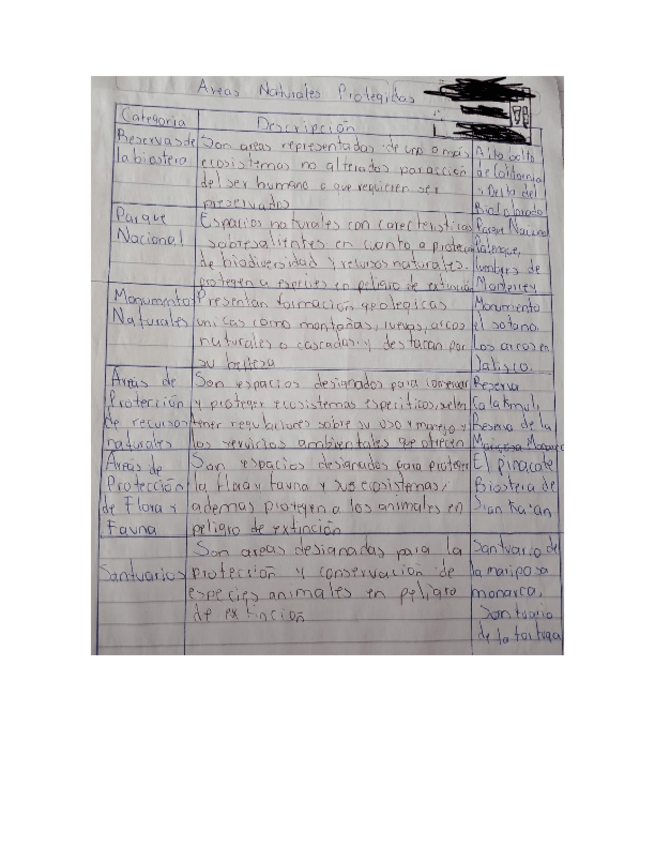 Areas Naturales Protegidas
Categoria Descripción
Reservas de la biosfera
Son areas representadas de uno o mas
ecosistemas no alterados por acción
del ser humano o que requieren ser
preservados
Alto golfo
de California
y Delta del
Rio Colorado
Parque
Nacional
Espacios naturales con caracteristicas
sobresalientes en cuanto a protec
de biodiversidad y recursos naturales.
protegen a especies en peligro de extinción
Parque Nacional
Palenque,
cumbres de
Monterrey
Monumento
Naturales
Presentan formación geologicas
unicas como montañas, cuevas, arcos
naturales o cascadas y destacan por
su belleza
Monumento
el sotano.
Los arcos en
Jalisco.
Areas de
Protección
de recursos
naturales
Son espacios designados para conservar
y proteger ecosistemas especificos, suelen
tener regulaciones sobre su uso y manejo y
los servicios ambientales que ofrecen
Reserva
Calakmul,
Reserva de la
Mariposa Monarca
Areas de
Protección
de Flora y
Fauna
Son espacios designados para proteger
la flora y fauna y sus ecosistemas,
ademas protegen a los animales en
peligro de extinción
El pinacate
Biosfera de
Sian Ka'an
Santuarios
Son areas designadas para la
protección y conservación de
especies animales en peligro
de extinción
Santuario de
la mariposa
monarca,
Santuario
de la tortuga